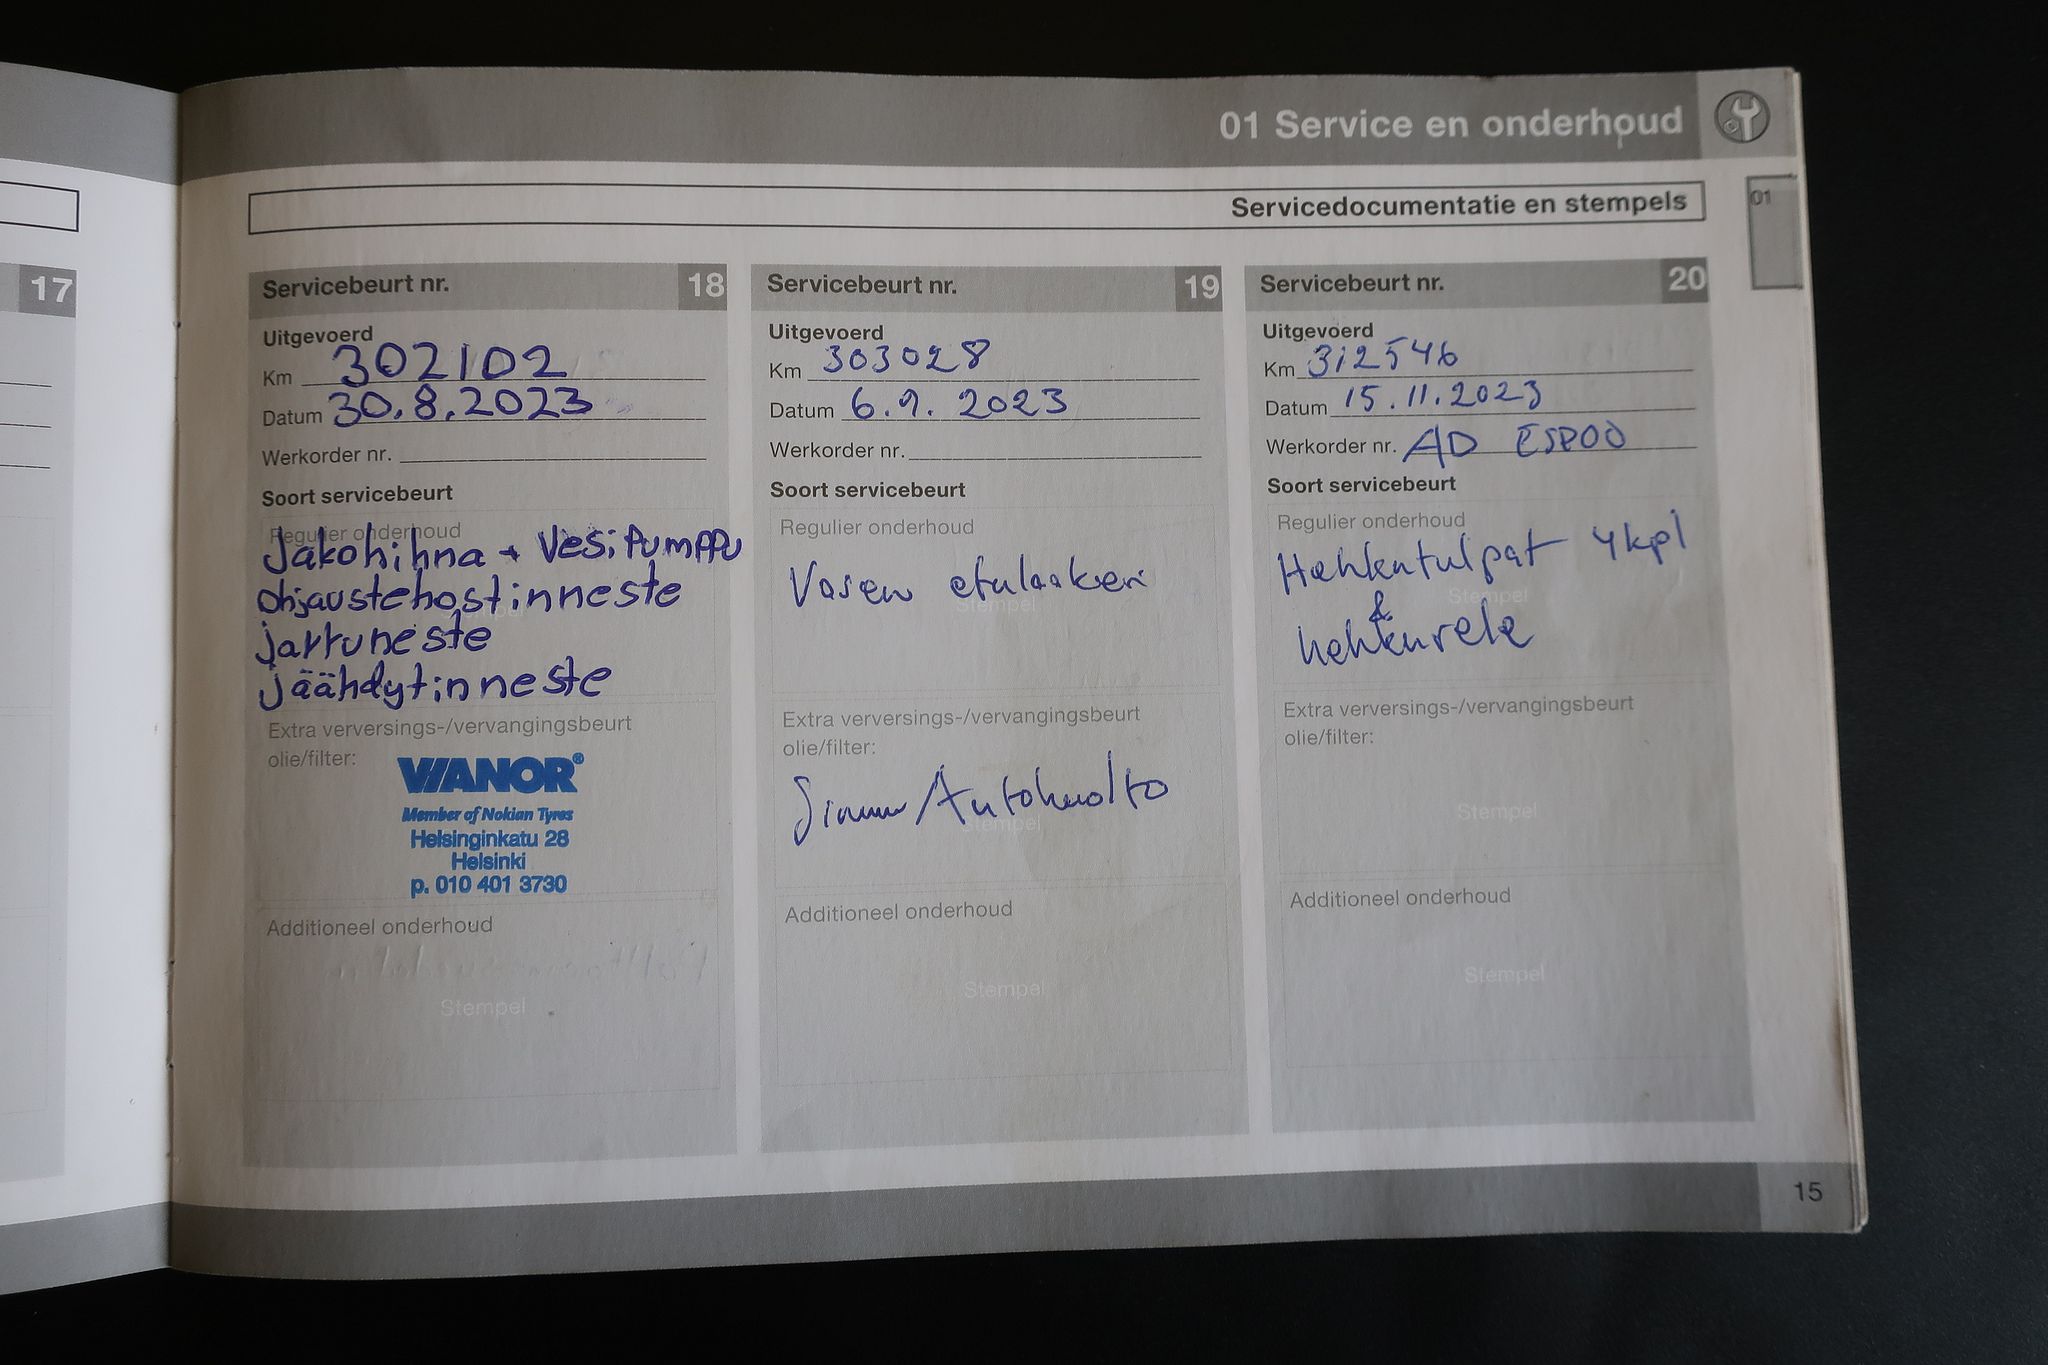 01 Service en onderhoud
Servicedocumentatie en stempels
01
17
Servicebeurt nr. 18
Uitgevoerd
Km 302102
Datum 30.8.2023
Werkorder nr.
Soort servicebeurt
Regulier onderhoud
Jakohihna + Vesipumppu
ohjaustehostinneste
jarruneste
jäähdytinneste
Stempel
Extra verversings-/vervangingsbeurt
olie/filter:
VIANOR®
Member of Nokian Tyres
Helsinginkatu 28
Helsinki
p. 010 401 3730
Additioneel onderhoud
Stempel
Servicebeurt nr. 19
Uitgevoerd
Km 303028
Datum 6.9.2023
Werkorder nr.
Soort servicebeurt
Regulier onderhoud
Vasen etulaakeri
Stempel
Extra verversings-/vervangingsbeurt
olie/filter:
Autohuolto
Stempel
Additioneel onderhoud
Stempel
Servicebeurt nr. 20
Uitgevoerd
Km 312546
Datum 15.11.2023
Werkorder nr. AD ESPOO
Soort servicebeurt
Regulier onderhoud
Hehkutulpat 4kpl
Stempel
&
hehkurele
Extra verversings-/vervangingsbeurt
olie/filter:
Stempel
Additioneel onderhoud
Stempel
15